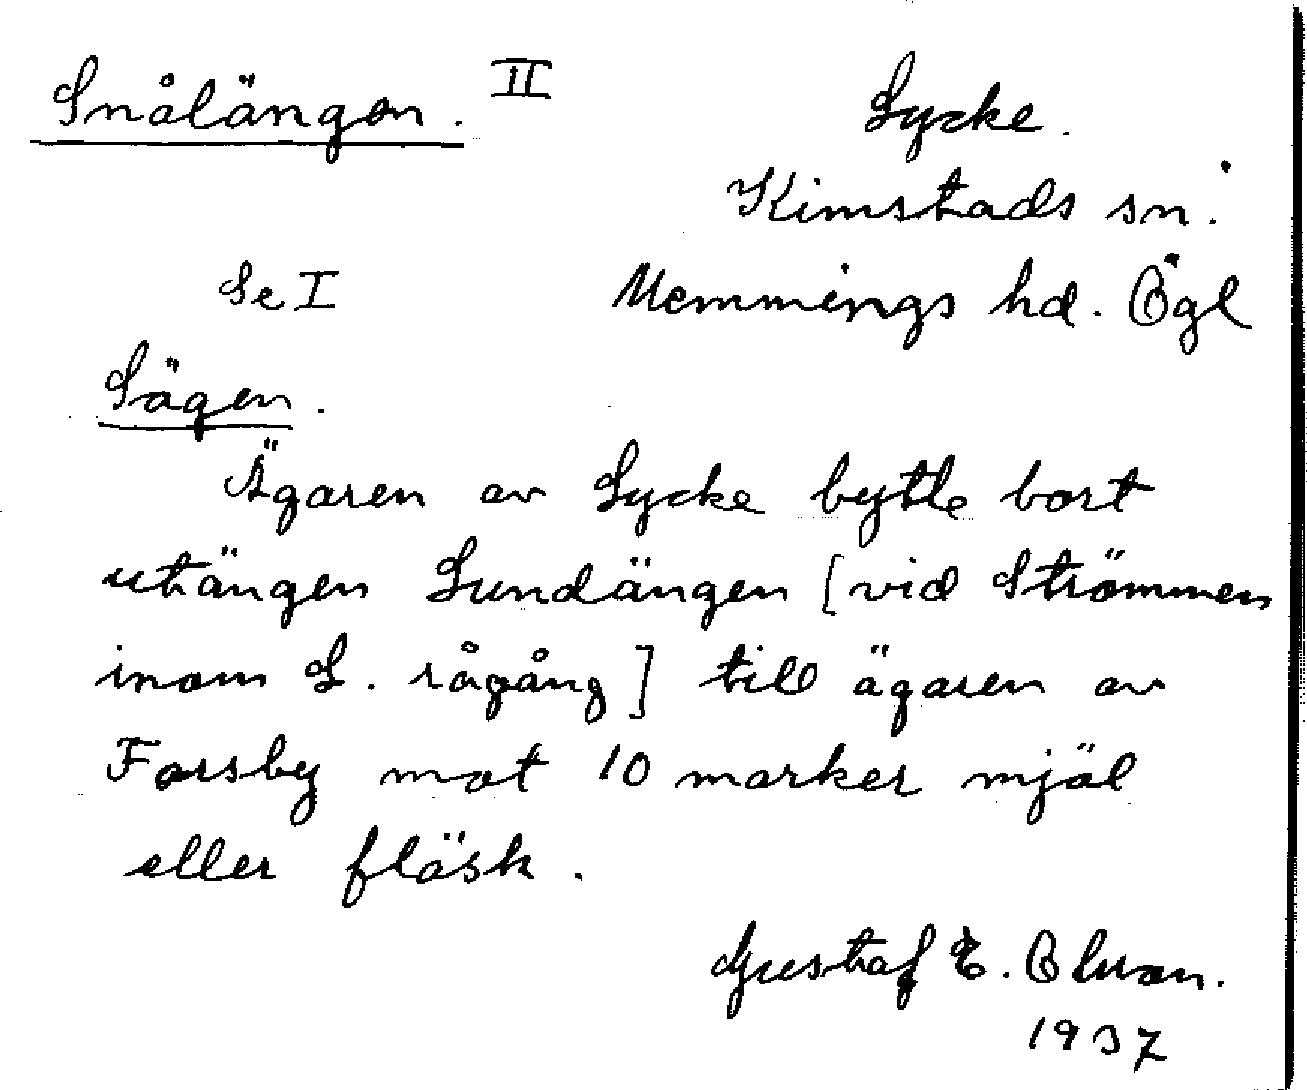 Snålängen. II
Lycke.
Kimstads sn.
Memmings hd. Ögl
Se I
Sägen.
Ägaren av Lycke bytte bort
utängen Lundängen [vid Strömmen
inom L. rågång] till ägaren av
Forsby mot 10 marker mjöl
eller fläsk.
Gustaf E.
1937